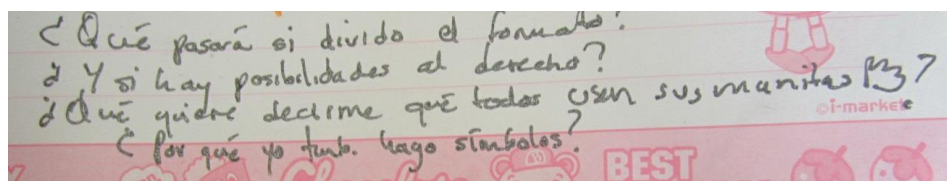 ¿Qué pasará si divido el formato?
¿Y si hay posibilidades al derecho?
¿Qué quiere decirme qué todos usen sus manitas ?
©i-market
¿Por qué yo tamb. hago símbolos?
BEST